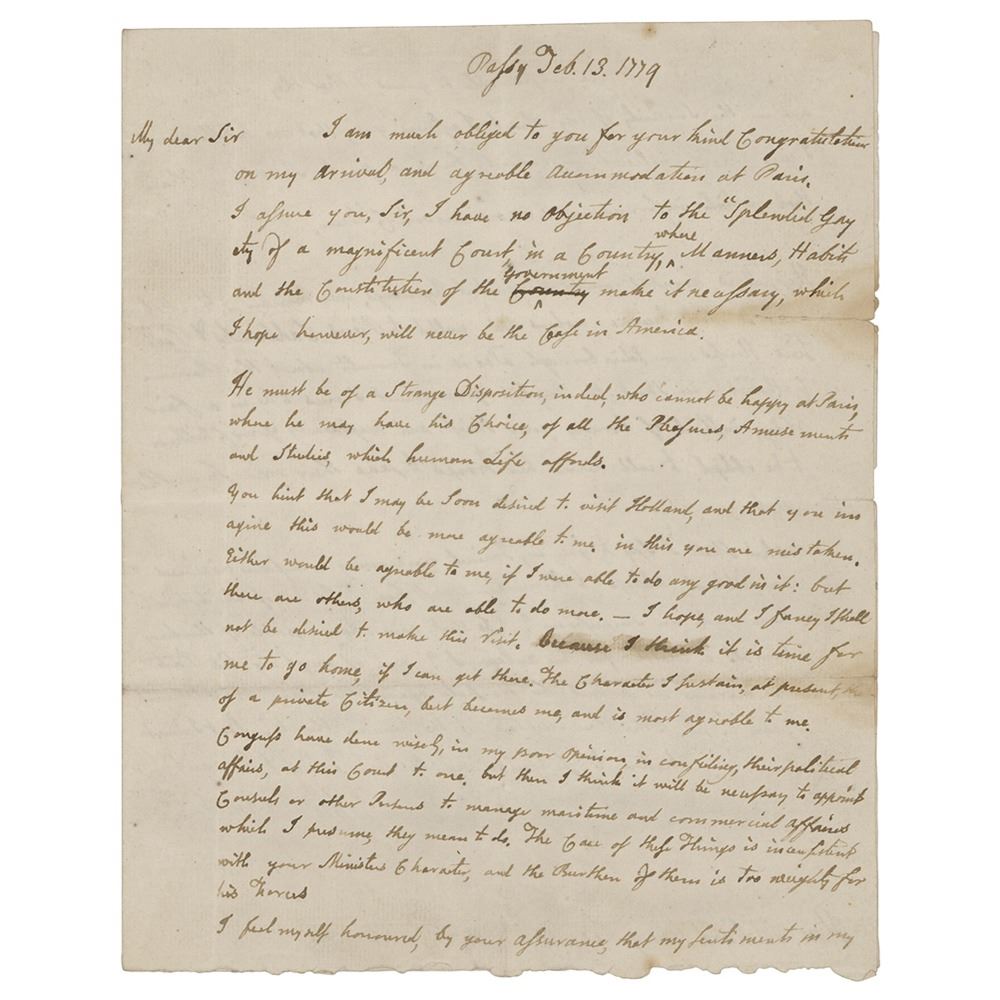 Passy Feb. 13. 1779
My dear Sir
I am much obliged to you for your kind Congratulations
on my arrival, and agreable accommodation at Paris.
I assure you, Sir, I have no objection to the "Splendid Gay
ety of a magnificent Court, in a Country, where Manners, Habits
and the Constitution of the Government make it necessary, which
I hope however, will never be the Case in America.
He must be of a Strange Disposition, indeed, who cannot be happy at Paris,
where he may have his Choice, of all the Pleasures, Amusements
and Studies, which human Life affords.
You hint that I may be Soon desired to visit Holland, and that you im
agine this would be more agreable to me. in this you are mistaken.
Either would be agreable to me, if I were able to do any good in it: but
there are others, who are able to do more. — I hope, and I fancy I shall
not be desired to make this Visit. Because I think it is time for
me to go home, if I can get there. The Character I sustain, at present,
of a private Citizen, best becomes me, and is most agreable to me.
Congress have done wisely, in my poor opinion, in confiding, their political
affairs, at this Court to one. but then I think it will be necessary to appoint
Consuls or other Persons to manage maritime and commercial affairs
which I presume, they mean to do. The Care of these Things is inconsistent
with your Ministers Character, and the Burthen of them is too weighty for
his Forces
I feel myself honoured, by your assurance, that my sentiments in my